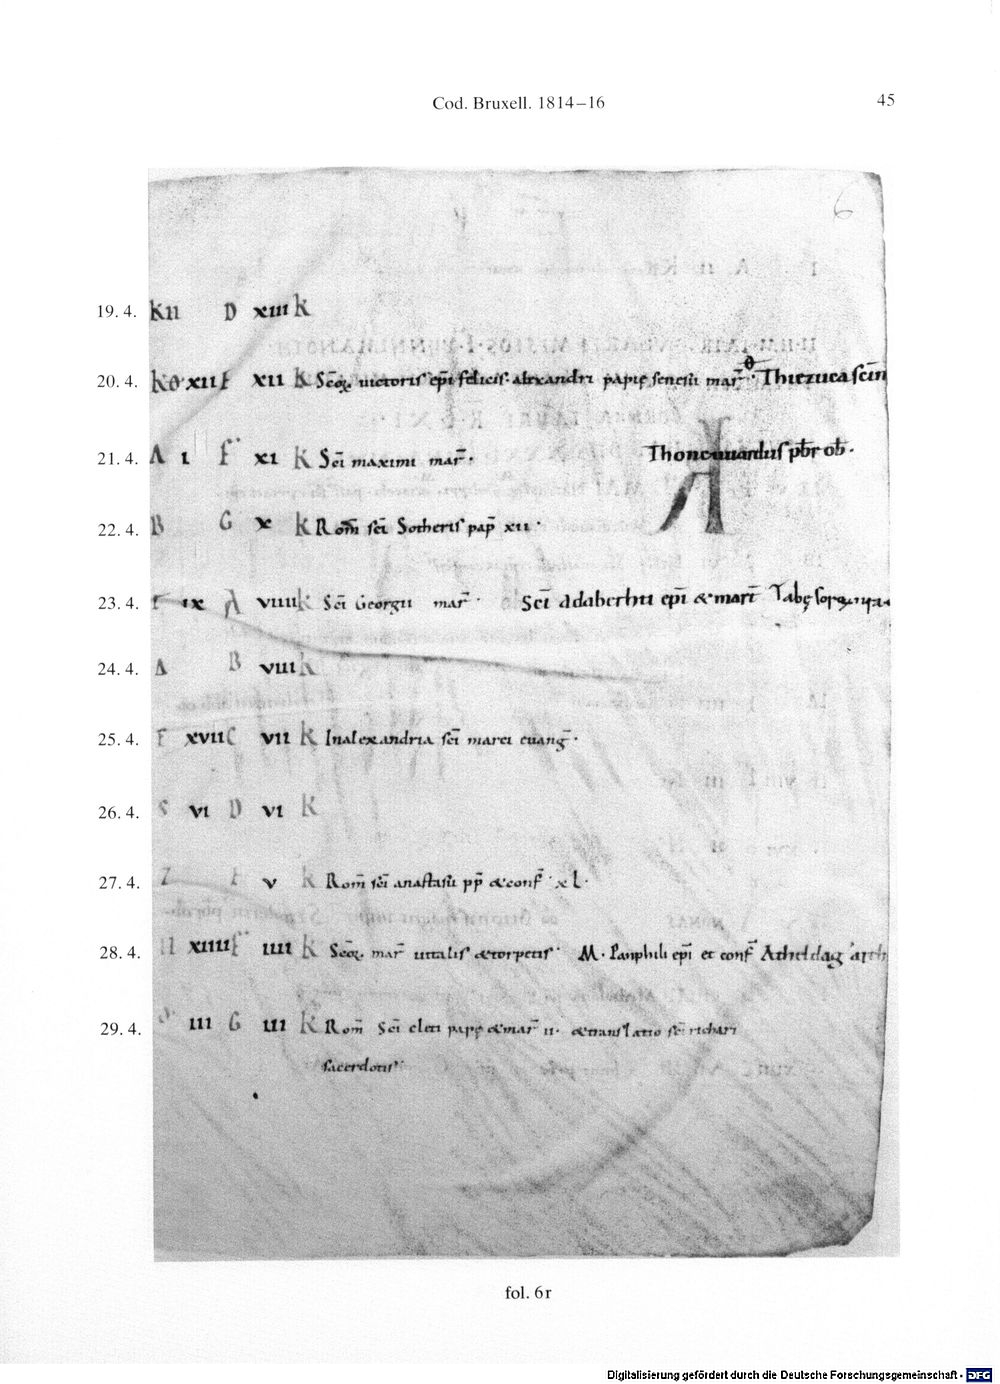 Cod. Bruxell. 1814–16
45
6
19.4. KII D XIII K
20.4. XII XII K Scoꝝ uictoris epi felicis alexandri papie senesii mar̄ · Thiezuca
21.4. A I F XI K Sci maximi mar̄ · Thoncuuardus pbr ob ·
22.4. B G X K Rom̄ sci Sotheris pap̄ xii ·
23.4. IX A VIIII K Sci Georgii mar̄ · Sci Adalberhti epi & mar̄
24.4. A B VIII K
25.4. F XVII C VII K In alexandria sci marci euanḡ ·
26.4. VI D VI K
27.4. V K Rom̄ sci anastasii pp̄ & conf̄ xl ·
28.4. XIIII F IIII K Scoꝝ mar̄ uitalis & torpetis · M · Panphili epi et conf̄ Atheldag
29.4. III G III K Rom̄ Sci cleti pape & mar̄ ii · & translatio sci richari
sacerdotis
A
fol. 6r
Digitalisierung gefördert durch die Deutsche Forschungsgemeinschaft - DFG